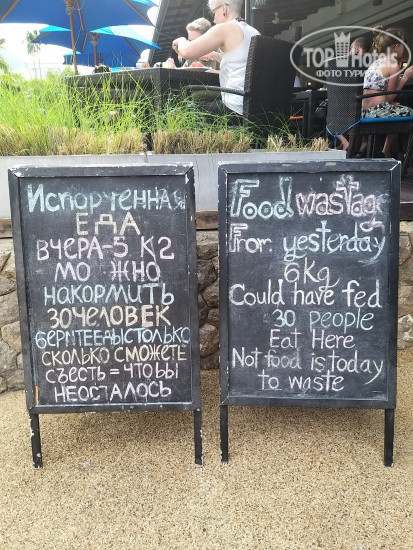 TOP Hotels
ФОТО ТУРИ
Испорченная
ЕДА
ВЧЕРА-5 К2
МО ЖНО
НАКОРМИТЬ
30ЧЕЛОВЕК
БЕРИТЕЕДЫСТОЛЬКО
СКОЛЬКО СМОЖЕТЕ
СЪЕСТЬ = ЧТОБЫ
НЕОСТАЛОСЬ
Food wastage
From yesterday
6kg
Could have fed
30 people
Eat Here
Not food is today
to waste